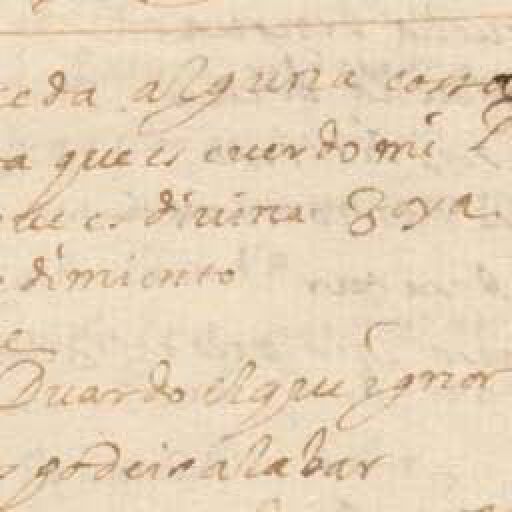 ceda alguna cossa
ra que es cuerdo mi
que es divina Joya
dimiento
Duardo el que ygnor
podeis alabar